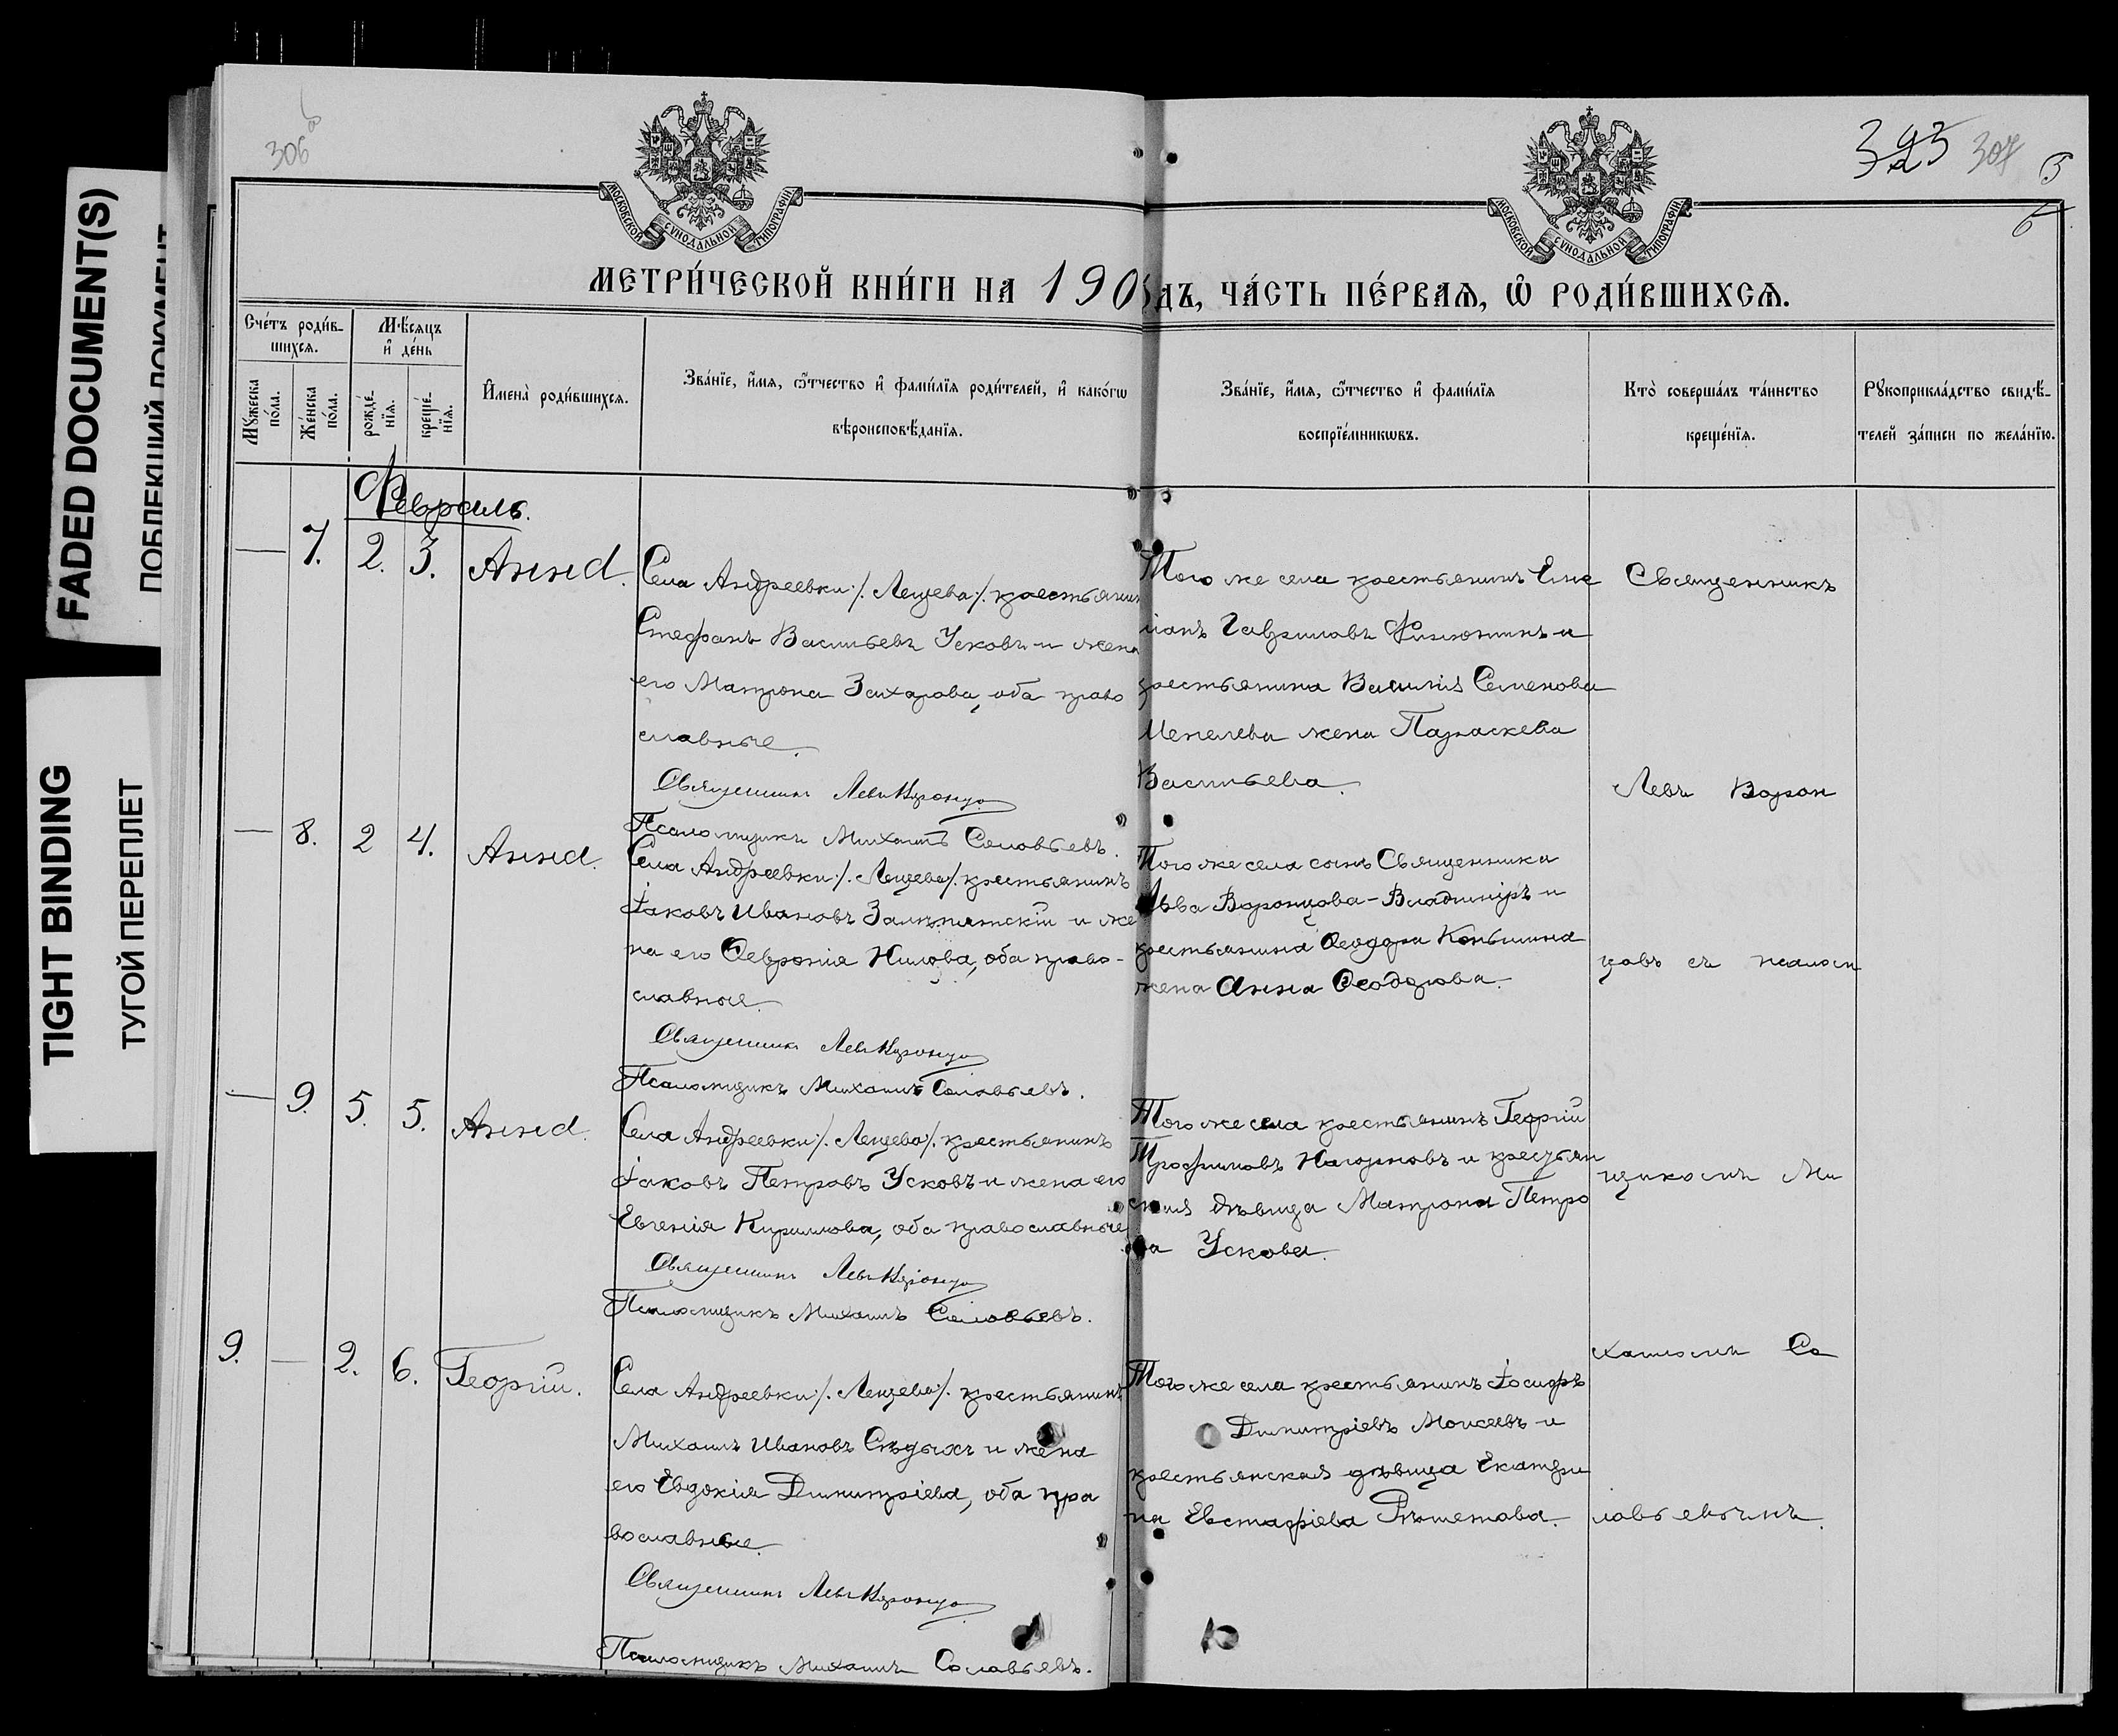 FADED DOCUMENT(S)
TIGHT BINDING
ТУГОЙ ПЕРЕПЛЕТ
306 об
323 307 5
6
МОСКОВСКОЙ СѴНОДАЛЬНОЙ ТИПОГРАФІИ
МОСКОВСКОЙ СѴНОДАЛЬНОЙ ТИПОГРАФІИ
МЕТРИ́ЧЕСКОЙ КНИ́ГИ НА 190
ДЪ, ЧА́СТЬ ПЕ́РВАѦ, Ѡ҆ РОДИ́ВШИХСѦ.
Сче́тъ роди́в-
шихсѧ.
Мѣ́сѧцъ
и҆ де́нь
Мꙋжеска по́ла.
Же́нска по́ла.
рожде́-
нїѧ.
креще́-
нїѧ.
И҆мена̀ роди́вшихсѧ.
Зва́нїе, и҆́мѧ, ѻ҆́тчество и҆ фами́лїѧ роди́телей, и҆ како́гѡ
вѣроисповѣ́данїѧ.
Зва́нїе, и҆́мѧ, ѻ҆́тчество и҆ фами́лїѧ
воспрїе́мникѡвъ.
Кто̀ соверша́лъ та́инство
креще́нїѧ.
Рꙋкоприкла́дство свидѣ́-
телей за́писи по жела́нїю.
Февраль.
— 7. 2. 3. Анна.
Села Андреевки /. Лещева /. крестьянин
Стефанъ Васильевъ Усковъ и жена
его Матрона Захарова, оба право
славные.
Священникъ Левъ Воронцо
Псаломщикъ Михаилъ Соловьевъ.
Того же села крестьянинъ Еме
ліанъ Гавриловъ Филюнинъ и
крестьянина Василія Семенова
жена Параскева
Васильева.
— 8. 2 4. Анна.
Села Андреевки /. Лещева /. крестьянинъ
Іаковъ Ивановъ и же
на его Февронія Нилова, оба право-
славные.
Священникъ Левъ Воронцо
Псаломщикъ Михаилъ Соловьевъ.
Того же села сынъ Священника
Льва Воронцова - Владиміръ и
крестьянина Феодора Коньшина
жена Анна Феодорова.
— 9. 5. 5. Анна.
Села Андреевки /. Лещева /. крестьянинъ
Іаковъ Петровъ Усковъ и жена его
Евгенія Кириллова, оба православные
Священникъ Левъ Воронцо
Псаломщикъ Михаилъ Соловьевъ.
Того же села крестьянинъ Георгій
Трофимовъ Нагорновъ и крестьян
ская дѣвица Матрона Петро
ва Ускова.
9. — 2. 6. Георгій.
Села Андреевки /. Лещева /. крестьянинъ
Михаилъ Ивановъ Сѣдыхъ и жена
его Евдокія Димитріева, оба пра
вославные.
Священникъ Левъ Воронцо
Псаломщикъ Михаилъ Соловьевъ.
Того же села крестьянинъ Іосифъ
Димитріевъ Моисеевъ и
крестьянская дѣвица Екатери
на Евстафіева Рѣшетова.
Священникъ
Левъ Ворон
цовъ съ псалом
щикомъ Ми
хаиломъ Со
ловьевымъ.